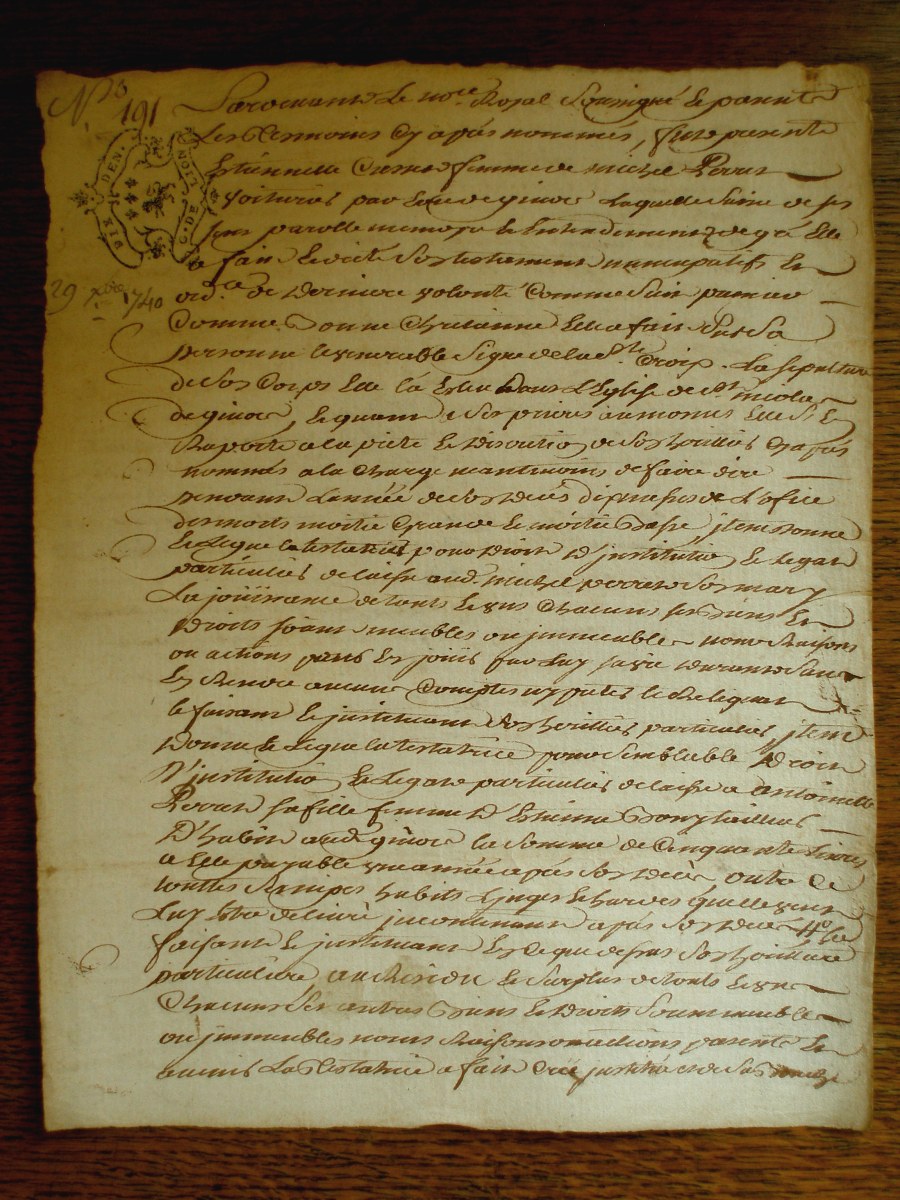 N 20
191
DIX DEN.
G. DE LION
29 xbre 1740
Pardevant Le no.re Royal Soussigné Le parente
Les Tesmoins Cy après nommés, fust presente
Estiennette femme de michel Perras
Voiturier par Eau de givors Laquelle Saine de ses
sens parolle memoire & Entendement de gré Elle
a fait Et dicté Son testament nuncupatif Et
ord.ce de derniere volonté Comme Suit
Comme bonne Chretienne Elle a fait Sur Sa
personne le venerable Signe de la S.te Croix. La sepulture
de Son Corps Elle la Esleu dans L'Eglise de S.t nicolas
de givors, Et quant a Ses prieres aumones Elle S'en
Raporte a la pieté Et discretion de Son heritier Cy après
nommé a la Charge neantmoins de faire dire
pendant L'année de Son decés dix messes de L'ofice
des morts moitié Grande Et moitié basse, jtem donne
Et Legue la testatrice pour droit D'jnstitution Et Legat
particulier delaisse aud. michel perras Son mary
La jouissance de touts Et uns Chacuns ses biens Et
droits soient meubles ou jmmeubles noms Raisons
ou actions pour En jouir par Luy sa vie durant Sans
En Rendre aucun Compte ny preter le Reliquat
le faisant Et jnstituant Son heritier particulier, jtem
donne Et Legue la testatrice pour Semblable droit
D'jnstitution Et Legat particulier delaisse a antoinette
Perras sa fille femme D'Estienne tailleur
D'habits aud. givors la Somme de Cinquante Livres
a Elle payable une année après Son decés, outre Ce
touttes Ses nipes habits Linges & hardes quelle veut
Luy Estre delivré jncontinant après Son decés la
faisante Et jnstituant En Ce que dessus Son heritiere
particuliere, au Residu Et Surplus de touts Et uns
Chacuns Ses autres biens Et droits Soient meubles
ou jmmeubles noms Raisons ou actions presents Et
avenir La Testatrice a fait Créé jnstitué et de Sa